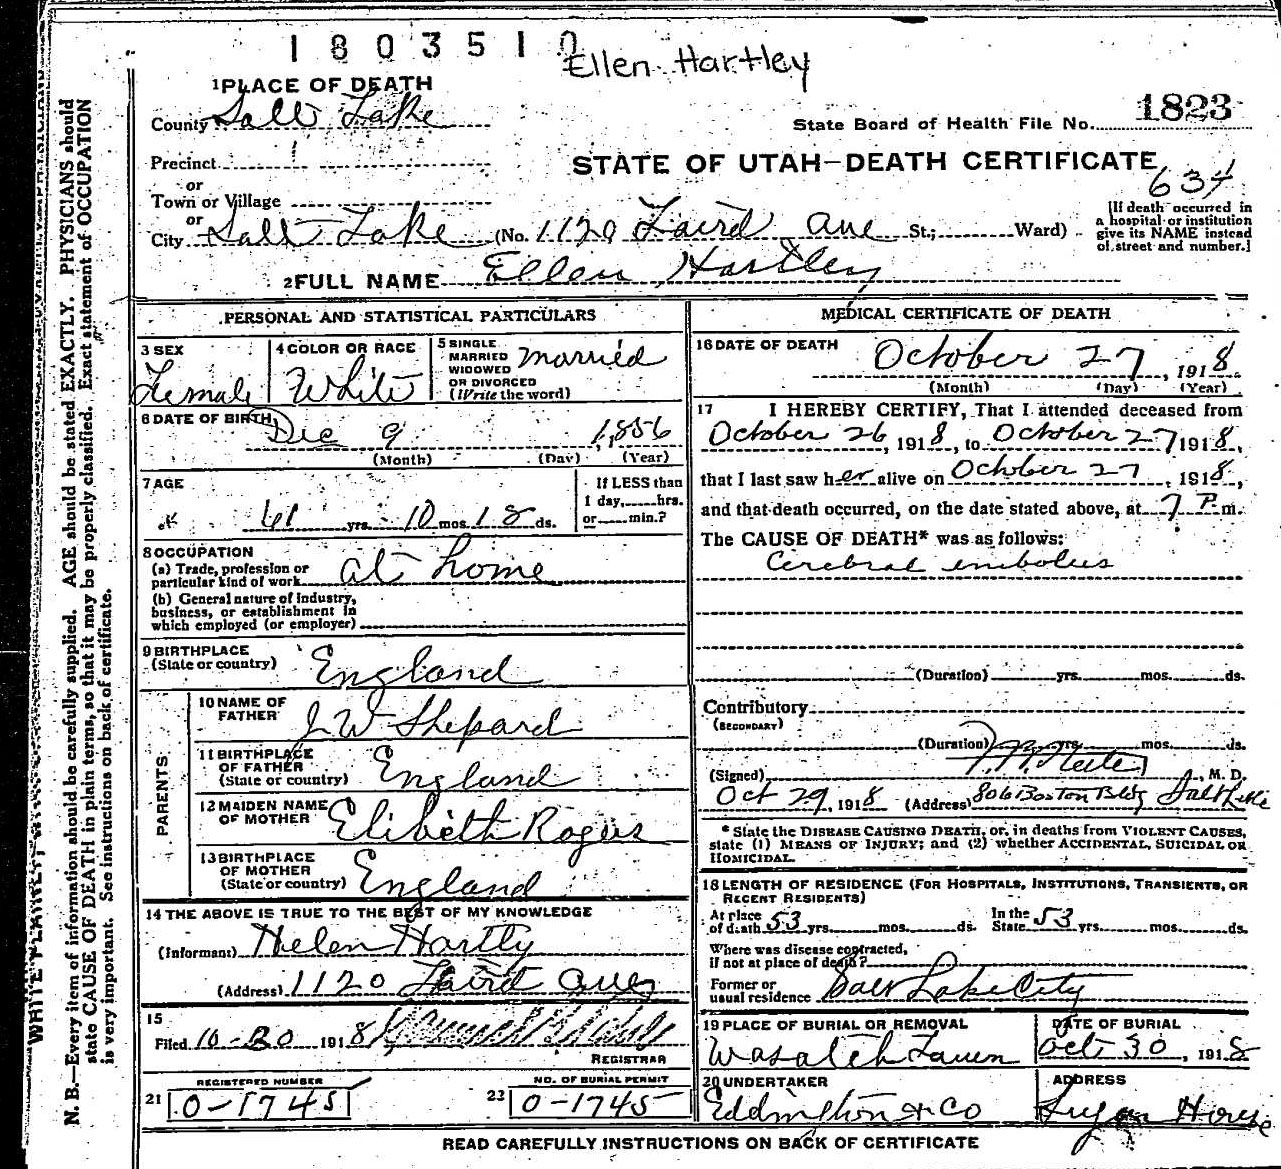 1803510
Ellen Hartley
1 PLACE OF DEATH
County Salt Lake
State Board of Health File No. 1823
Precinct 1
STATE OF UTAH—DEATH CERTIFICATE
or
634
Town or Village
or
City Salt Lake (No. 1120 Laird ave St.; Ward)
[If death occurred in
a hospital or institution
give its NAME instead
of street and number.]
2 FULL NAME Ellen Hartley
PERSONAL AND STATISTICAL PARTICULARS
3 SEX
Female
4 COLOR OR RACE
White
5 SINGLE
MARRIED
WIDOWED
OR DIVORCED
(Write the word)
married
6 DATE OF BIRTH
Dec 9 1,856
(Month) (Day) (Year)
7 AGE
61 yrs. 10 mos. 18 ds.
If LESS than
1 day, hrs.
or min.?
8 OCCUPATION
(a) Trade, profession or
particular kind of work at home
(b) General nature of industry,
business, or establishment in
which employed (or employer)
9 BIRTHPLACE
(State or country) England
PARENTS
10 NAME OF
FATHER J W Shepard
11 BIRTHPLACE
OF FATHER
(State or country) England
12 MAIDEN NAME
OF MOTHER Elibeth Rogers
13 BIRTHPLACE
OF MOTHER
(State or country) England
14 THE ABOVE IS TRUE TO THE BEST OF MY KNOWLEDGE
(Informant) Helen Hartly
(Address) 1120 Laird ave
15
Filed 10-30 1918
REGISTRAR
REGISTERED NUMBER
21 0-1745
NO. OF BURIAL PERMIT
22 0-1745
MEDICAL CERTIFICATE OF DEATH
16 DATE OF DEATH
October 27, 1918
(Month) (Day) (Year)
17 I HEREBY CERTIFY, That I attended deceased from
October 26, 1918, to October 27 1918,
that I last saw her alive on October 27, 1918,
and that death occurred, on the date stated above, at 7 P. m.
The CAUSE OF DEATH* was as follows:
Cerebral embolus
(Duration) yrs. mos. ds.
Contributory
(SECONDARY)
(Duration) yrs. mos. ds.
(Signed) , M. D.
Oct 29, 1918 (Address) 806 Boston Bldg Salt Lake
* State the DISEASE CAUSING DEATH, or, in deaths from VIOLENT CAUSES,
state (1) MEANS OF INJURY; and (2) whether ACCIDENTAL, SUICIDAL OR
HOMICIDAL.
18 LENGTH OF RESIDENCE (FOR HOSPITALS, INSTITUTIONS, TRANSIENTS, OR
RECENT RESIDENTS)
At place
of death 53 yrs. mos. ds.
In the
State 53 yrs. mos. ds.
Where was disease contracted,
if not at place of death?
Former or
usual residence Salt Lake City
19 PLACE OF BURIAL OR REMOVAL
Wasatch Lawn
DATE OF BURIAL
Oct 30, 1918
20 UNDERTAKER
Eddington & Co
ADDRESS
Sugar House
READ CAREFULLY INSTRUCTIONS ON BACK OF CERTIFICATE
N. B.—Every item of information should be carefully supplied. AGE should be stated EXACTLY. PHYSICIANS should
state CAUSE OF DEATH in plain terms, so that it may be properly classified. Exact statement of OCCUPATION
is very important. See instructions on back of certificate.